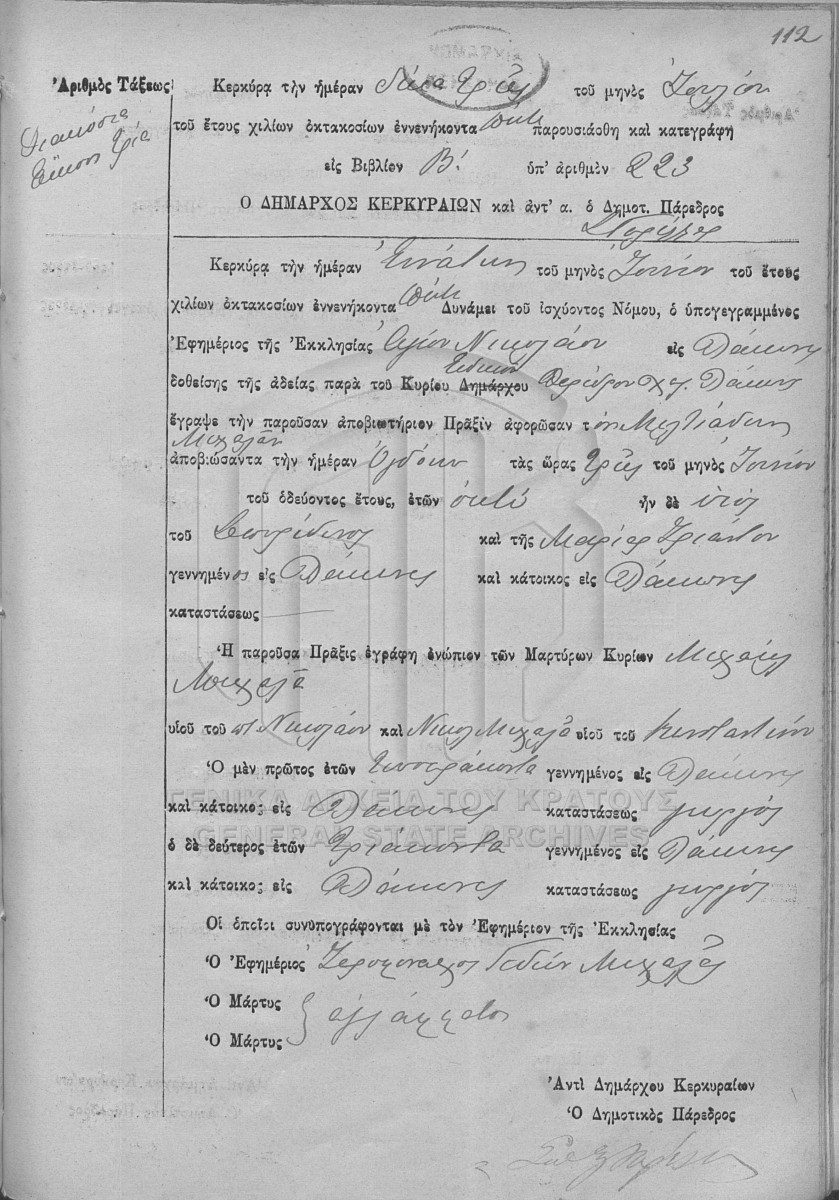 112
Ἀριθμὸς Τάξεως
Διακόσια
εἴκοσι τρία
Κερκύρᾳ τὴν ἡμέραν δέκα τρεῖς τοῦ μηνὸς Ἰουλίου
τοῦ ἔτους χιλίων ὀκτακοσίων ἐννενήκοντα ὀκτὼ παρουσιάσθη καὶ κατεγράφη
εἰς Βιβλίον Β! ὑπ' ἀριθμὸν 223
Ο ΔΗΜΑΡΧΟΣ ΚΕΡΚΥΡΑΙΩΝ καὶ ἀντ' α. ὁ Δημοτ. Πάρεδρος
Κερκύρᾳ τὴν ἡμέραν Ἐννάτην τοῦ μηνὸς Ἰουνίου τοῦ ἔτους
χιλίων ὀκτακοσίων ἐννενήκοντα ὀκτὼ Δυνάμει τοῦ ἰσχύοντος Νόμου, ὁ ὑπογεγραμμένος
Ἐφημέριος τῆς Ἐκκλησίας Ἁγίου Νικολάου εἰς Δάκωνες
Εἰδικοῦ
δοθείσης τῆς ἀδείας παρὰ τοῦ Κυρίου Δημάρχου Παρέδρου χ. Δάκωνες
ἔγραψε τὴν παροῦσαν ἀποβιωτήριον Πρᾶξιν ἀφορῶσαν τὸν Μιλτιάδην
Μιχαλᾶν
ἀποβιώσαντα τὴν ἡμέραν Ὀγδόην τὰς ὥρας τρεῖς τοῦ μηνὸς Ἰουνίου
τοῦ ὁδεύοντος ἔτους, ἐτῶν ὀκτώ ἦν δὲ υἱός
τοῦ Σπυρίδωνος καὶ τῆς Μαρίας Τριάντου
γεννημένος εἰς Δάκωνες καὶ κάτοικος εἰς Δάκωνες
καταστάσεως
Ἡ παροῦσα Πρᾶξις ἐγράφη ἐνώπιον τῶν Μαρτύρων Κυρίων Μιχαὴλ
Μιχαλᾶ
υἱοῦ τοῦ πτ Νικολάου καὶ Νικολ Μιχαλᾶ υἱοῦ τοῦ Κωνσταντίνου
Ὁ μὲν πρῶτος ἐτῶν τεσσαράκοντα γεννημένος εἰς Δάκωνες
καὶ κάτοικος εἰς Δάκωνες καταστάσεως γεωργός
ὁ δὲ δεύτερος ἐτῶν τριάκοντα γεννημένος εἰς Δάκωνες
καὶ κάτοικος εἰς Δάκωνες καταστάσεως γεωργός
Οἱ ὁποῖοι συνυπογράφονται μὲ τὸν Ἐφημέριον τῆς Ἐκκλησίας
Ὁ Ἐφημέριος Ἱερομόναχος Γεδεών Μιχαλᾶς
Ὁ Μάρτυς
ἀγράμματοι
Ὁ Μάρτυς
Ἀντὶ Δημάρχου Κερκυραίων
Ὁ Δημοτικὸς Πάρεδρος
ΓΕΝΙΚΑ ΑΡΧΕΙΑ ΤΟΥ ΚΡΑΤΟΥΣ
GENERAL STATE ARCHIVES